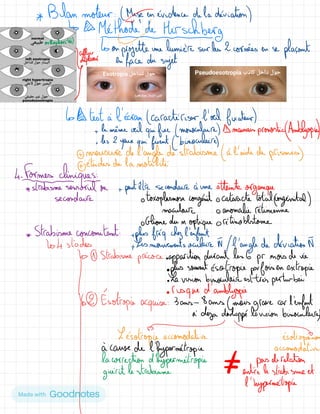 * Bilan moteur (Mise en évidence de la déviation)
Méthode de Hirschberg
reflet
cornéen
normal
طبيعي
left esotropia
right hypertropia
pseudoesotropia
on projette une lumière sur les 2 cornées en se plaçant
en face du sujet
Esotropia حول للداخل
Pseudoesotropia حول للداخل كاذب
test à l'écran (caractériser l'œil fixateur)
le même œil qui fixe (monoculaire) mauvais pronostic (Amblyopie)
les 2 yeux qui fixent (binoculaire)
mesure de l'angle de strabisme (à l'aide de prismes)
études de la motilité
4. Formes cliniques:
* strabisme sensoriel ou
secondaire
peut être secondaire à une atteinte organique
toxoplasmose congénit
maculaire
cataracte totale (congénital)
anomalie rétinienne
du n optique
rétinoblastome.
* Strabisme concomitant
plus frq chez l'enfant
les mouvements oculaire N / l'angle de déviation N
4 stades
① Strabisme précoce
apparition durant les 6 pr mois de vie
plus souvent ésotropie parfois en exotropie
la vision binoculaire est très perturbée
risque d'amblyopie
② Esotropie acquise: 3 ans - 8 ans (moins grave car l'enfant
a déjà développé la vision binoculaire)
L'ésotropie accomodative
à cause de l'hypermétropie
la correction d'hypermétropie
guérit le strabisme
≠
ésotropie non
accomodative
pas de relation
entre le strabisme et
l'hypermétropie
Made with Goodnotes